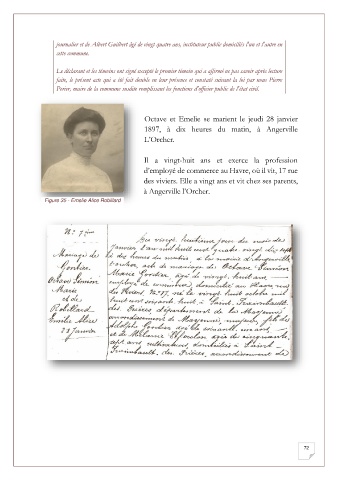 journalier et de Albert Guilbert âgé de vingt quatre ans, instituteur public domiciliés l'un et l'autre en
cette commune.
Le déclarant et les témoins ont signé excepté le premier témoin qui a affirmé ne pas savoir après lecture
faite, le présent acte qui a été fait double en leur présence et constaté suivant la loi par nous Pierre
Porier, maire de la commune susdite remplissant les fonctions d'officier public de l'état civil.
Octave et Emelie se marient le jeudi 28 janvier
1897, à dix heures du matin, à Angerville
L'Orcher.
Il a vingt-huit ans et exerce la profession
d'employé de commerce au Havre, où il vit, 17 rue
des viviers. Elle a vingt ans et vit chez ses parents,
à Angerville l'Orcher.
Figure 35 - Emelie Alice Robillard
N: 7
Mariage de
Gontier
Octave Siméon
Marie
et de
Robillard
Emelie Alice
28 Janvier
Du vingt huitième jour du mois de
Janvier l'an mil huit cent quatre vingt dix sept
à dix heures du matin, à la mairie d'Angerville
l'orcher, acte de mariage de Octave Siméon
Marie Gontier, âgé de vingt huit ans
employé de commerce, domicilié au Havre, rue
des Viviers N: 17, né le vingt huit octobre mil
huit cent soixante huit à Saint Fraimbault
des Prières, département de la Mayenne
arrondissement de Mayenne, majeur, fils de
Adolphe Gontier âgé de soixante un ans
et de Mélanie âgée de cinquante
sept ans, cultivateurs, domiciliés à Saint
Fraimbault, des Prières, arrondissement de
72